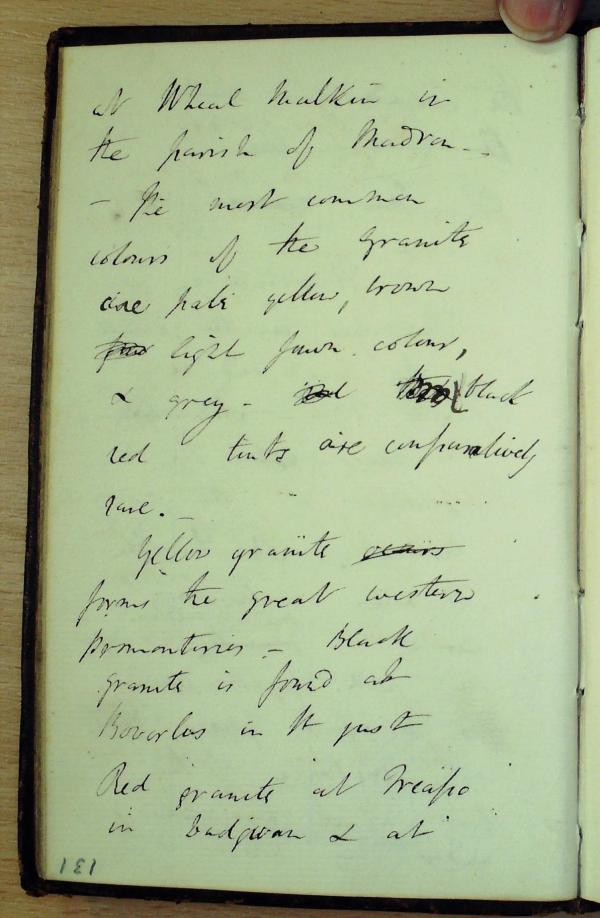 at Wheal Malkin in
the parish of Madron -
- The most common
colours of the granite
are pale yellow, brown
light fawn colour,
& grey - black
red tints are comparatively
rare. -
Yellow granite occurs
forms the great western
promontories - Black
granite is found at
in St just
Red granite at
in & at
131